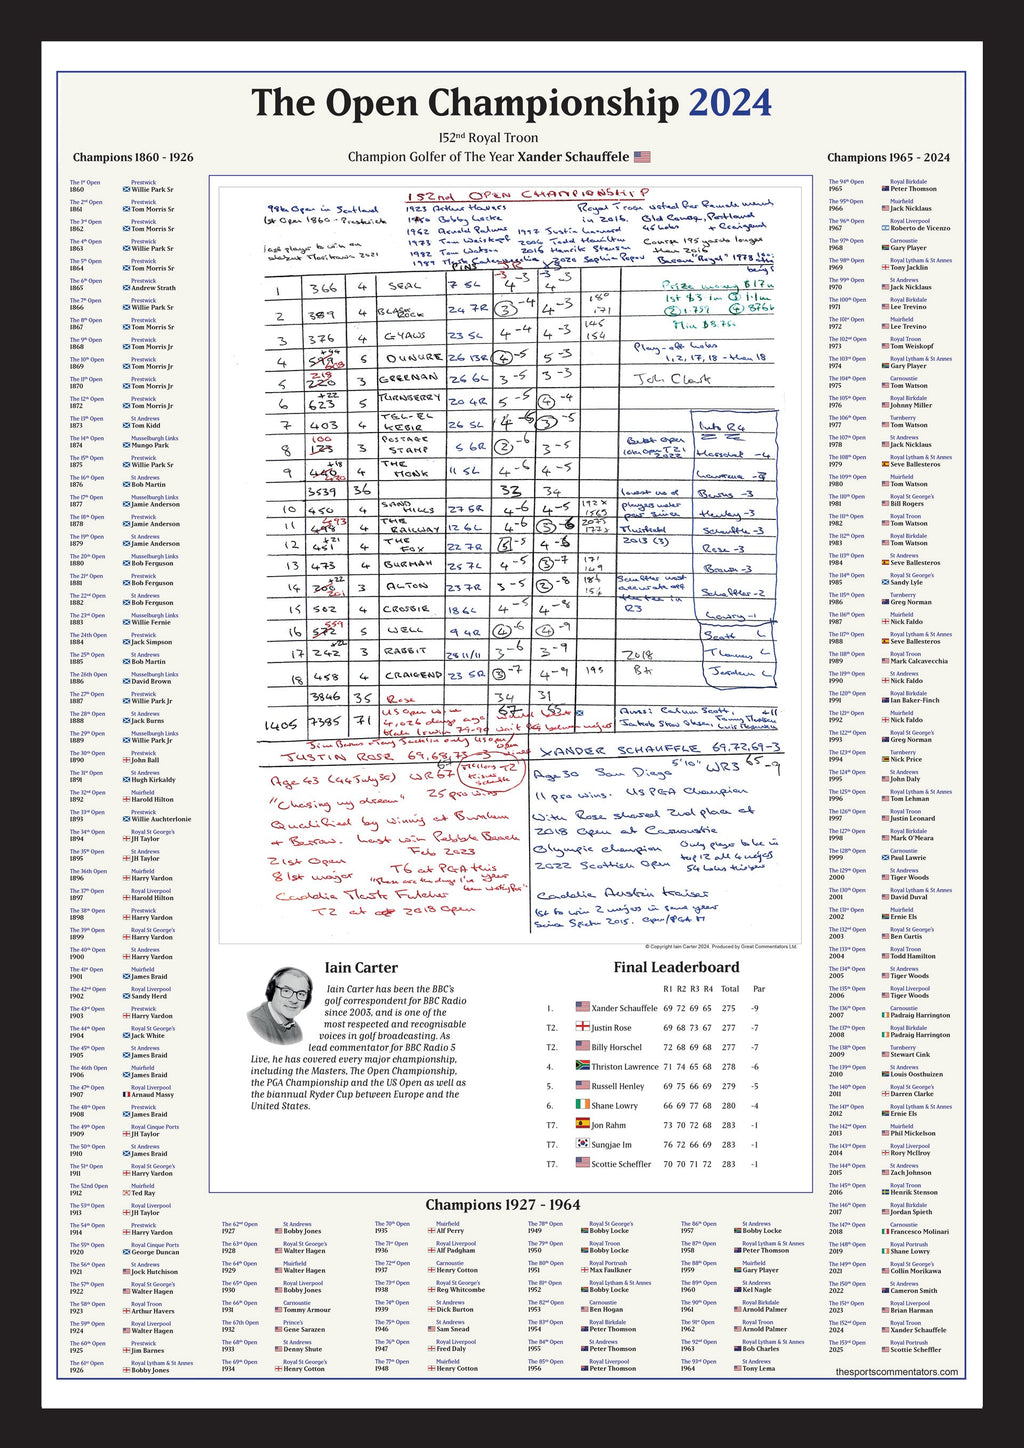 The Open Championship 2024
152nd Royal Troon
Champion Golfer of The Year Xander Schauffele
Champions 1860 - 1926
The 1st Open Prestwick
1860 Willie Park Sr
The 2nd Open Prestwick
1861 Tom Morris Sr
The 3rd Open Prestwick
1862 Tom Morris Sr
The 4th Open Prestwick
1863 Willie Park Sr
The 5th Open Prestwick
1864 Tom Morris Sr
The 6th Open Prestwick
1865 Andrew Strath
The 7th Open Prestwick
1866 Willie Park Sr
The 8th Open Prestwick
1867 Tom Morris Sr
The 9th Open Prestwick
1868 Tom Morris Jr
The 10th Open Prestwick
1869 Tom Morris Jr
The 11th Open Prestwick
1870 Tom Morris Jr
The 12th Open Prestwick
1872 Tom Morris Jr
The 13th Open St Andrews
1873 Tom Kidd
The 14th Open Musselburgh Links
1874 Mungo Park
The 15th Open Prestwick
1875 Willie Park Sr
The 16th Open St Andrews
1876 Bob Martin
The 17th Open Musselburgh Links
1877 Jamie Anderson
The 18th Open Prestwick
1878 Jamie Anderson
The 19th Open St Andrews
1879 Jamie Anderson
The 20th Open Musselburgh Links
1880 Bob Ferguson
The 21st Open Prestwick
1881 Bob Ferguson
The 22nd Open St Andrews
1882 Bob Ferguson
The 23rd Open Musselburgh Links
1883 Willie Fernie
The 24th Open Prestwick
1884 Jack Simpson
The 25th Open St Andrews
1885 Bob Martin
The 26th Open Musselburgh Links
1886 David Brown
The 27th Open Prestwick
1887 Willie Park Jr
The 28th Open St Andrews
1888 Jack Burns
The 29th Open Musselburgh Links
1889 Willie Park Jr
The 30th Open Prestwick
1890 John Ball
The 31st Open St Andrews
1891 Hugh Kirkaldy
The 32nd Open Muirfield
1892 Harold Hilton
The 33rd Open Prestwick
1893 Willie Auchterlonie
The 34th Open Royal St George's
1894 JH Taylor
The 35th Open St Andrews
1895 JH Taylor
The 36th Open Muirfield
1896 Harry Vardon
The 37th Open Royal Liverpool
1897 Harold Hilton
The 38th Open Prestwick
1898 Harry Vardon
The 39th Open Royal St George's
1899 Harry Vardon
The 40th Open St Andrews
1900 Harry Vardon
The 41st Open Muirfield
1901 James Braid
The 42nd Open Royal Liverpool
1902 Sandy Herd
The 43rd Open Prestwick
1903 Harry Vardon
The 44th Open Royal St George's
1904 Jack White
The 45th Open St Andrews
1905 James Braid
The 46th Open Muirfield
1906 James Braid
The 47th Open Royal Liverpool
1907 Arnaud Massy
The 48th Open Prestwick
1908 James Braid
The 49th Open Royal Cinque Ports
1909 JH Taylor
The 50th Open St Andrews
1910 James Braid
The 51st Open Royal St George's
1911 Harry Vardon
The 52nd Open Muirfield
1912 Ted Ray
The 53rd Open Royal Liverpool
1913 JH Taylor
The 54th Open Prestwick
1914 Harry Vardon
The 55th Open Royal Cinque Ports
1920 George Duncan
The 56th Open St Andrews
1921 Jock Hutchison
The 57th Open Royal St George's
1922 Walter Hagen
The 58th Open Royal Troon
1923 Arthur Havers
The 59th Open Royal Liverpool
1924 Walter Hagen
The 60th Open Prestwick
1925 Jim Barnes
The 61st Open Royal Lytham & St Annes
1926 Bobby Jones
152nd OPEN CHAMPIONSHIP
98th Open in Scotland
1st Open 1860 - Prestwick
1923 Arthur Havers
1950 Bobby Locke
1962 Arnold Palmer
1973 Tom Weiskopf
1982 Tom Watson
1989 Mark Calcavecchia
1997 Justin Leonard
2004 Todd Hamilton
2016 Henrik Stenson
2020 Sophia Popov
Royal Troon voted for female memb
in 2016.
Course 195 yards longer
than 2016
Became "Royal" 1978
Prize money $17m
1st $3.1m
Play-off holes
1, 2, 17, 18 - then 18
1 366 4 SEAL 7 5L 4 4
2 389 4 BLACK ROCK 24 7R 3 -4 4 -3
3 376 4 GYAWS 23 5L 4 -4 4 -3
4 599 5 DUNURE 26 13R 4 -5 5 -3
5 220 3 GREENAN 26 6L 3 -5 3 -3
6 623 5 TURNBERRY 20 4R 5 -5 4 -4
7 403 4 TEL-EL KEBIR 26 5L 4 -6 3 -5
8 123 3 POSTAGE STAMP 5 6R 2 -6 3 -5
9 440 4 THE MONK 11 5L 4 -6 4 -5
3539 36 33 34
10 450 4 SANDHILLS 27 5R 4 -6 4 -5
11 498 4 THE RAILWAY 12 6L 4 -6 3 -6
12 451 4 THE FOX 22 7R 5 -5 4 -6
13 473 4 BURMAH 25 7L 4 -5 3 -7
14 200 3 AILTON 23 7R 3 -5 2 -8
15 502 4 CROSBIE 18 6L 4 -5 4 -8
16 572 5 WELL 9 4R 4 -6 4 -9
17 242 3 RABBIT 28 11/11 3 -6 3 -9
18 458 4 CRAIGEND 23 5R 3 -7 4 -9
3846 35 Rose 34 31
1405 7385 71 67 65
Into R4
Horschel -4
Lawrence -3
Burns -3
Henley -3
Schauffele -3
Rose -3
Brown -3
Scheffler -2
Lowry -1
Scott L
Thomas L
Jordan L
JUSTIN ROSE 69,68,73 -3
Age 43 (44 July 30) WR67
"Chasing my dream" 25 pro wins
Qualified by winning at Burnham
& Berrow. Last win Pebble Beach
Feb 2023
21st Open
81st major T6 at PGA this year
Caddie Mark Fulcher
T2 at 2018 Open
XANDER SCHAUFFLE 69,72,69 -3
65 -9
Age 30 San Diego 5'10" WR3
11 pro wins. US PGA Champion
With Rose shared 2nd place at
2018 Open at Carnoustie
Olympic champion
2022 Scottish Open
Only player to be in
top 12 all 4 majors
Caddie Austin Kaiser
1st to win 2 majors in same year
since Spieth 2015. Open/PGA
© Copyright Iain Carter 2024. Produced by Great Commentators Ltd.
Iain Carter
Iain Carter has been the BBC's
golf correspondent for BBC Radio
since 2003, and is one of the
most respected and recognisable
voices in golf broadcasting. As
lead commentator for BBC Radio 5
Live, he has covered every major championship,
including the Masters, The Open Championship,
the PGA Championship and the US Open as well as
the biannual Ryder Cup between Europe and the
United States.
Final Leaderboard
R1 R2 R3 R4 Total Par
1. Xander Schauffele 69 72 69 65 275 -9
T2. Justin Rose 69 68 73 67 277 -7
T2. Billy Horschel 72 68 69 68 277 -7
4. Thriston Lawrence 71 74 65 68 278 -6
5. Russell Henley 69 75 66 69 279 -5
6. Shane Lowry 66 69 77 68 280 -4
T7. Jon Rahm 73 70 72 68 283 -1
T7. Sungjae Im 76 72 66 69 283 -1
T7. Scottie Scheffler 70 70 71 72 283 -1
Champions 1927 - 1964
The 62nd Open St Andrews
1927 Bobby Jones
The 63rd Open Royal St George's
1928 Walter Hagen
The 64th Open Muirfield
1929 Walter Hagen
The 65th Open Royal Liverpool
1930 Bobby Jones
The 66th Open Carnoustie
1931 Tommy Armour
The 67th Open Prince's
1932 Gene Sarazen
The 68th Open St Andrews
1933 Denny Shute
The 69th Open Royal St George's
1934 Henry Cotton
The 70th Open Muirfield
1935 Alf Perry
The 71st Open Royal Liverpool
1936 Alf Padgham
The 72nd Open Carnoustie
1937 Henry Cotton
The 73rd Open Royal St George's
1938 Reg Whitcombe
The 74th Open St Andrews
1939 Dick Burton
The 75th Open St Andrews
1946 Sam Snead
The 76th Open Royal Liverpool
1947 Fred Daly
The 77th Open Muirfield
1948 Henry Cotton
The 78th Open Royal St George's
1949 Bobby Locke
The 79th Open Royal Troon
1950 Bobby Locke
The 80th Open Royal Portrush
1951 Max Faulkner
The 81st Open Royal Lytham & St Annes
1952 Bobby Locke
The 82nd Open Carnoustie
1953 Ben Hogan
The 83rd Open Royal Birkdale
1954 Peter Thomson
The 84th Open St Andrews
1955 Peter Thomson
The 85th Open Royal Liverpool
1956 Peter Thomson
The 86th Open St Andrews
1957 Bobby Locke
The 87th Open Royal Lytham & St Annes
1958 Peter Thomson
The 88th Open Muirfield
1959 Gary Player
The 89th Open St Andrews
1960 Kel Nagle
The 90th Open Royal Birkdale
1961 Arnold Palmer
The 91st Open Royal Troon
1962 Arnold Palmer
The 92nd Open Royal Lytham & St Annes
1963 Bob Charles
The 93rd Open St Andrews
1964 Tony Lema
Champions 1965 - 2024
The 94th Open Royal Birkdale
1965 Peter Thomson
The 95th Open Muirfield
1966 Jack Nicklaus
The 96th Open Royal Liverpool
1967 Roberto de Vicenzo
The 97th Open Carnoustie
1968 Gary Player
The 98th Open Royal Lytham & St Annes
1969 Tony Jacklin
The 99th Open St Andrews
1970 Jack Nicklaus
The 100th Open Royal Birkdale
1971 Lee Trevino
The 101st Open Muirfield
1972 Lee Trevino
The 102nd Open Royal Troon
1973 Tom Weiskopf
The 103rd Open Royal Lytham & St Annes
1974 Gary Player
The 104th Open Carnoustie
1975 Tom Watson
The 105th Open Royal Birkdale
1976 Johnny Miller
The 106th Open Turnberry
1977 Tom Watson
The 107th Open St Andrews
1978 Jack Nicklaus
The 108th Open Royal Lytham & St Annes
1979 Seve Ballesteros
The 109th Open Muirfield
1980 Tom Watson
The 110th Open Royal St George's
1981 Bill Rogers
The 111th Open Royal Troon
1982 Tom Watson
The 112th Open Royal Birkdale
1983 Tom Watson
The 113th Open St Andrews
1984 Seve Ballesteros
The 114th Open Royal St George's
1985 Sandy Lyle
The 115th Open Turnberry
1986 Greg Norman
The 116th Open Muirfield
1987 Nick Faldo
The 117th Open Royal Lytham & St Annes
1988 Seve Ballesteros
The 118th Open Royal Troon
1989 Mark Calcavecchia
The 119th Open St Andrews
1990 Nick Faldo
The 120th Open Royal Birkdale
1991 Ian Baker-Finch
The 121st Open Muirfield
1992 Nick Faldo
The 122nd Open Royal St George's
1993 Greg Norman
The 123rd Open Turnberry
1994 Nick Price
The 124th Open St Andrews
1995 John Daly
The 125th Open Royal Lytham & St Annes
1996 Tom Lehman
The 126th Open Royal Troon
1997 Justin Leonard
The 127th Open Royal Birkdale
1998 Mark O'Meara
The 128th Open Carnoustie
1999 Paul Lawrie
The 129th Open St Andrews
2000 Tiger Woods
The 130th Open Royal Lytham & St Annes
2001 David Duval
The 131st Open Muirfield
2002 Ernie Els
The 132nd Open Royal St George's
2003 Ben Curtis
The 133rd Open Royal Troon
2004 Todd Hamilton
The 134th Open St Andrews
2005 Tiger Woods
The 135th Open Royal Liverpool
2006 Tiger Woods
The 136th Open Carnoustie
2007 Padraig Harrington
The 137th Open Royal Birkdale
2008 Padraig Harrington
The 138th Open Turnberry
2009 Stewart Cink
The 139th Open St Andrews
2010 Louis Oosthuizen
The 140th Open Royal St George's
2011 Darren Clarke
The 141st Open Royal Lytham & St Annes
2012 Ernie Els
The 142nd Open Muirfield
2013 Phil Mickelson
The 143rd Open Royal Liverpool
2014 Rory McIlroy
The 144th Open St Andrews
2015 Zach Johnson
The 145th Open Royal Troon
2016 Henrik Stenson
The 146th Open Royal Birkdale
2017 Jordan Spieth
The 147th Open Carnoustie
2018 Francesco Molinari
The 148th Open Royal Portrush
2019 Shane Lowry
The 149th Open Royal St George's
2021 Collin Morikawa
The 150th Open St Andrews
2022 Cameron Smith
The 151st Open Royal Liverpool
2023 Brian Harman
The 152nd Open Royal Troon
2024 Xander Schauffele
The 153rd Open Royal Portrush
2025 Scottie Scheffler
thesportscommentators.com